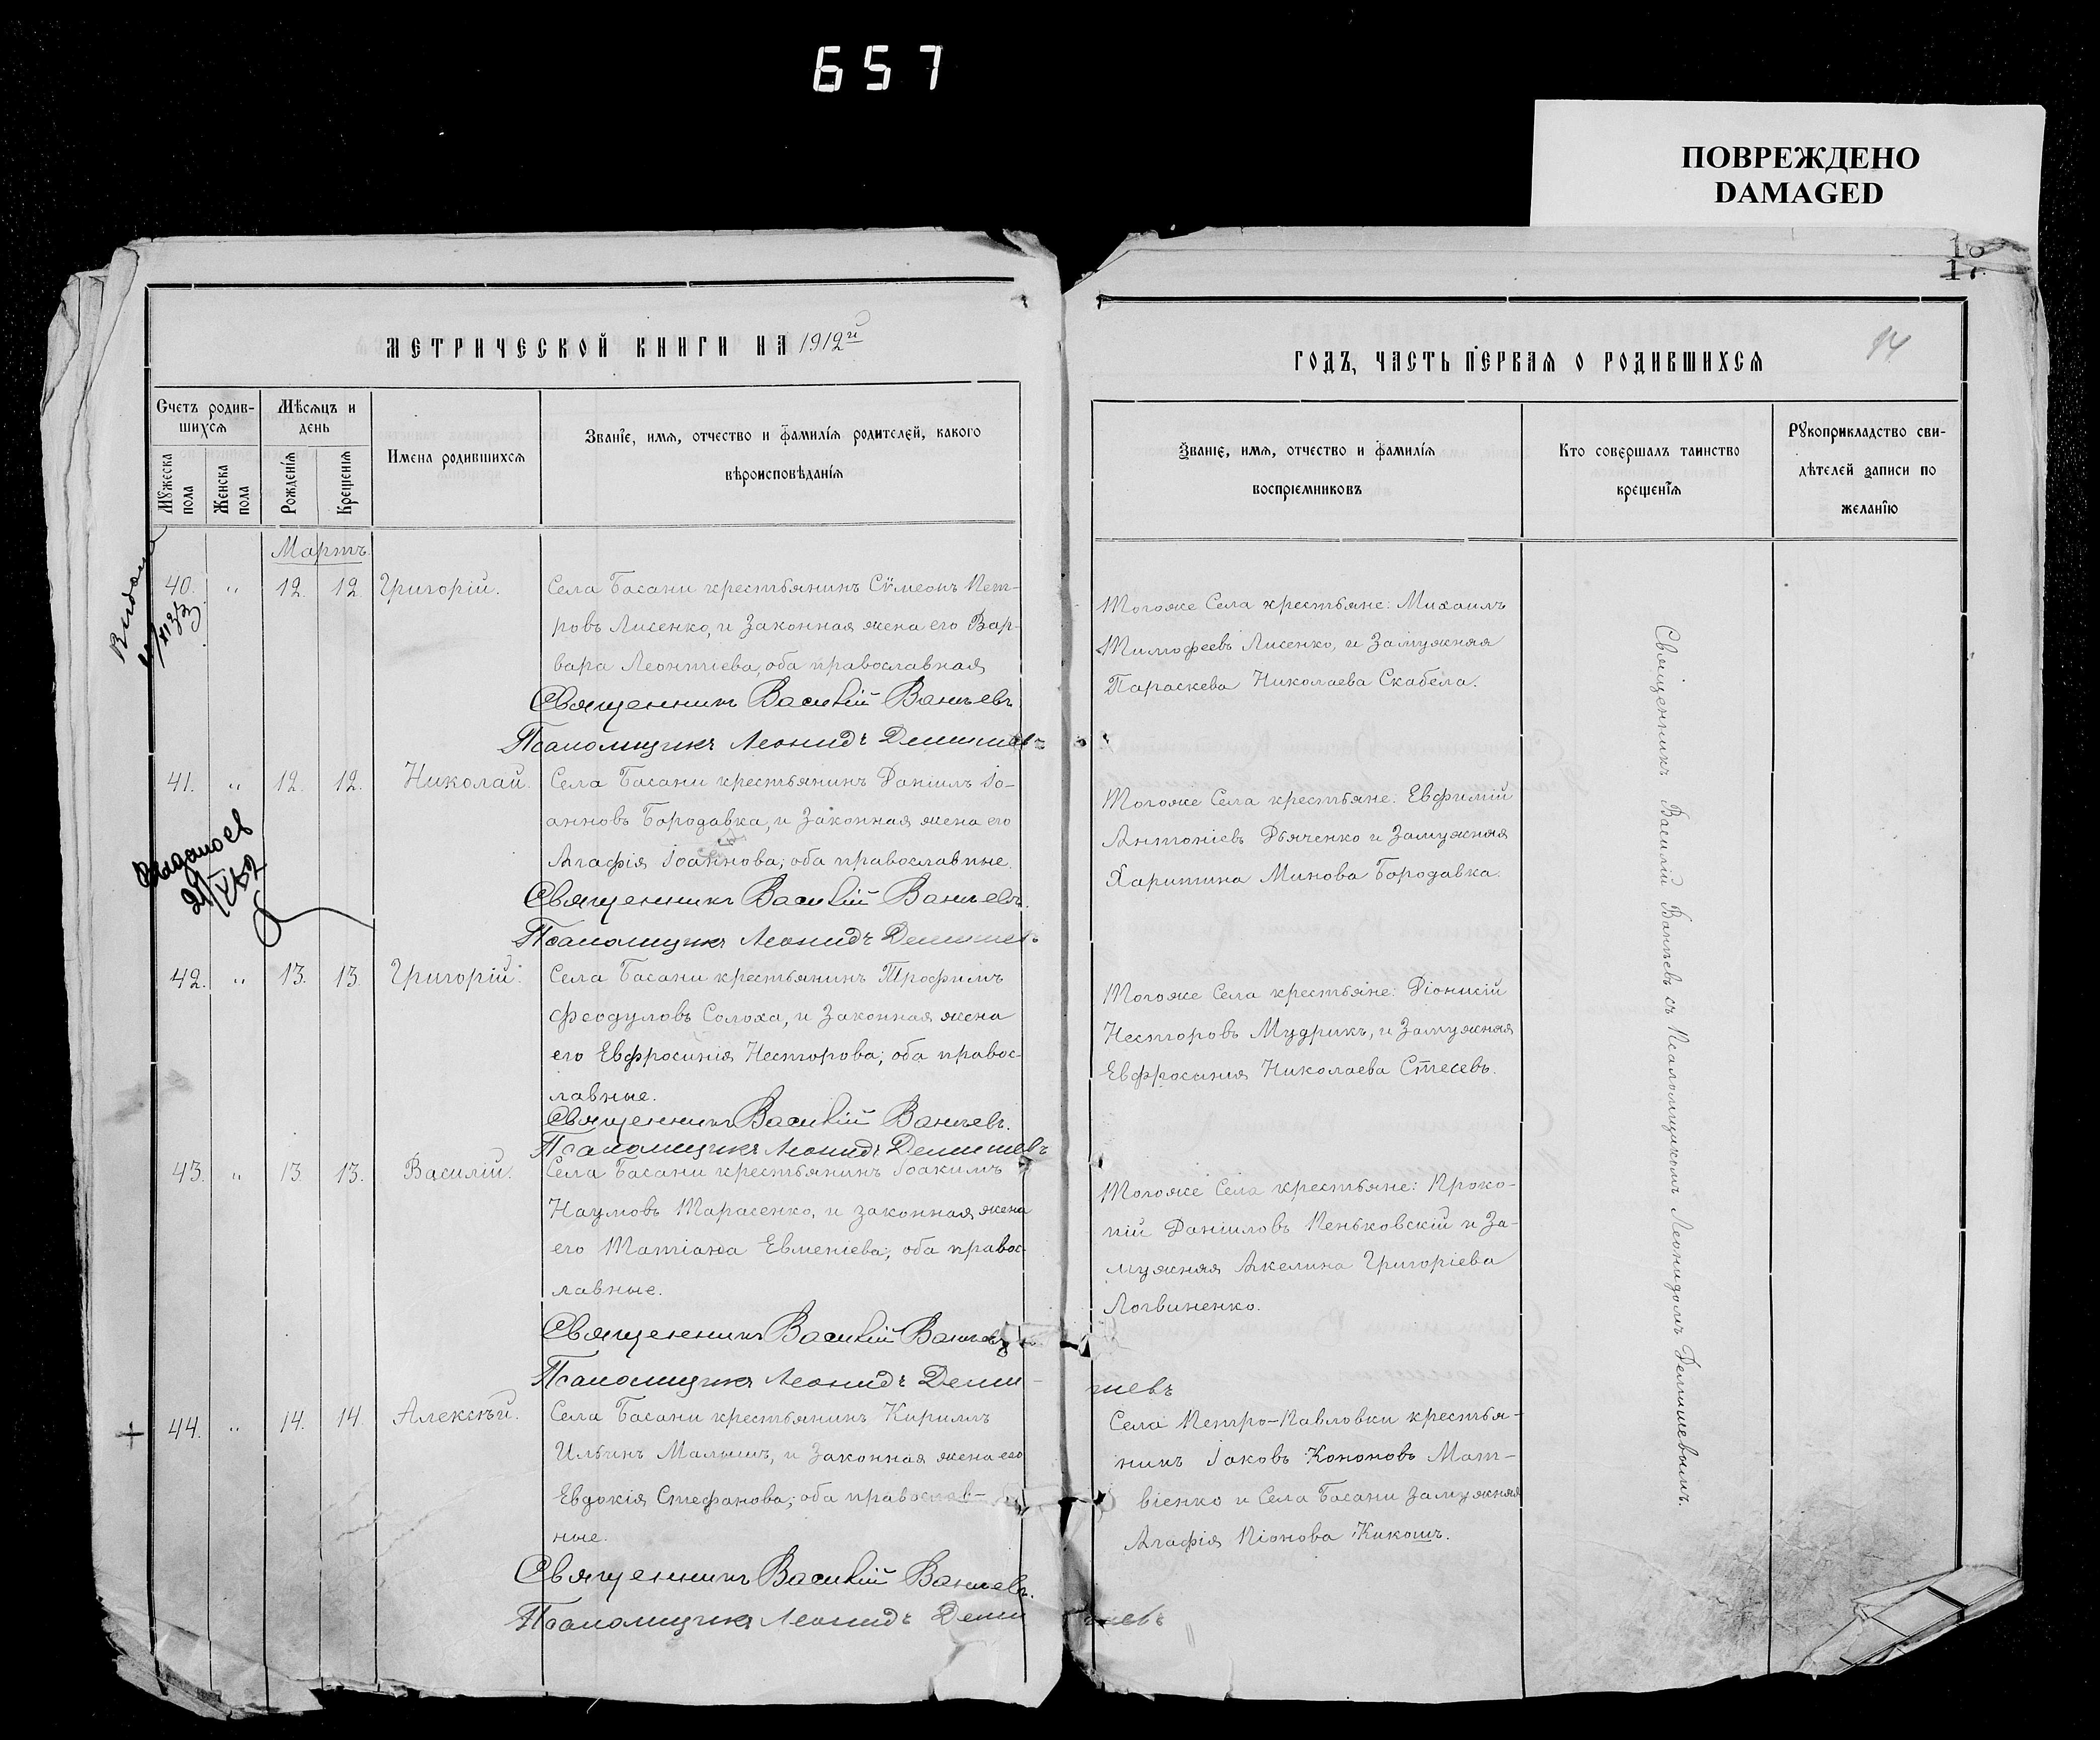 657
ПОВРЕЖДЕНО
DAMAGED
МЕТРИЧЕСКОЙ КНИГИ НА 1912й
Счетъ родив-
шихся
Мѣсяцъ и
день
Мужеска
пола
Женска
пола
Рожденія
Крещенія
Имена родившихся
Званіе, имя, отчество и фамилія родителей, какого
вѣроисповѣданія
Мартъ.
40. „ 12. 12. Григорій.
Села Басани крестьянинъ Сѵмеонъ Пет-
ровъ Лисенко, и законная жена его Вар-
вара Леонтіева, оба православная
Священникъ Василій Ваньевъ
Псаломщикъ Леонидъ Демишевъ
41. „ 12. 12. Николай.
Села Басани крестьянинъ Даніилъ Іо-
анновъ Бородавка, и законная жена его
Агафія Іоаннова; оба православные.
Священникъ Василій Ваньевъ.
Псаломщикъ Леонидъ Демишевъ
42. „ 13. 13. Григорій.
Села Басани крестьянинъ Трофимъ
Феодуловъ Солоха, и законная жена
его Евфросинія Несторова; оба правос-
лавные.
Священникъ Василій Ваньевъ.
Псаломщикъ Леонидъ Демишевъ
43. „ 13. 13. Василій.
Села Басани крестьянинъ Іоакимъ
Наумовъ Тарасенко, и законная жена
его Татіана Евменіева; оба правос-
лавные.
Священникъ Василій Ваньевъ
Псаломщикъ Леонидъ Деми-
44. „ 14. 14. Алексѣй.
Села Басани крестьянинъ Кириллъ
Ильинъ Малышъ, и законная жена его
Евдокія Стефанова; оба православ-
ные.
Священникъ Василій Ваньевъ.
Псаломщикъ Леонидъ Деми
ГОДЪ, ЧАСТЬ ПЕРВАЯ О РОДИВШИХСЯ
14
Званіе, имя, отчество и фамилія
воспріемниковъ
Кто совершалъ таинство
крещенія
Рукоприкладство сви-
дѣтелей записи по
желанію
Тогоже Села крестьяне: Михаилъ
Тимофеевъ Лисенко, и замужняя
Параскева Николаева Скабела.
Тогоже Села крестьяне: Евфимій
Антоніевъ Дьяченко и замужняя
Харитина Минова Бородавка.
Тогоже Села крестьяне: Діонисій
Несторовъ Мудрикъ, и замужняя
Евфросинія Николаева Стесевъ.
Тогоже Села крестьяне: Проко-
пій Даніиловъ Пеньковскій и за-
мужняя Акелина Григоріева
Логвиненко.
шевъ
Села Петро-Павловки крестья-
нинъ Іаковъ Кононовъ Мат-
віенко и Села Басани замужняя
Агафія Піонова Кикошъ.
шевъ
Священникъ Василій Ваньевъ съ Псаломщикомъ Леонидомъ Демишевымъ.